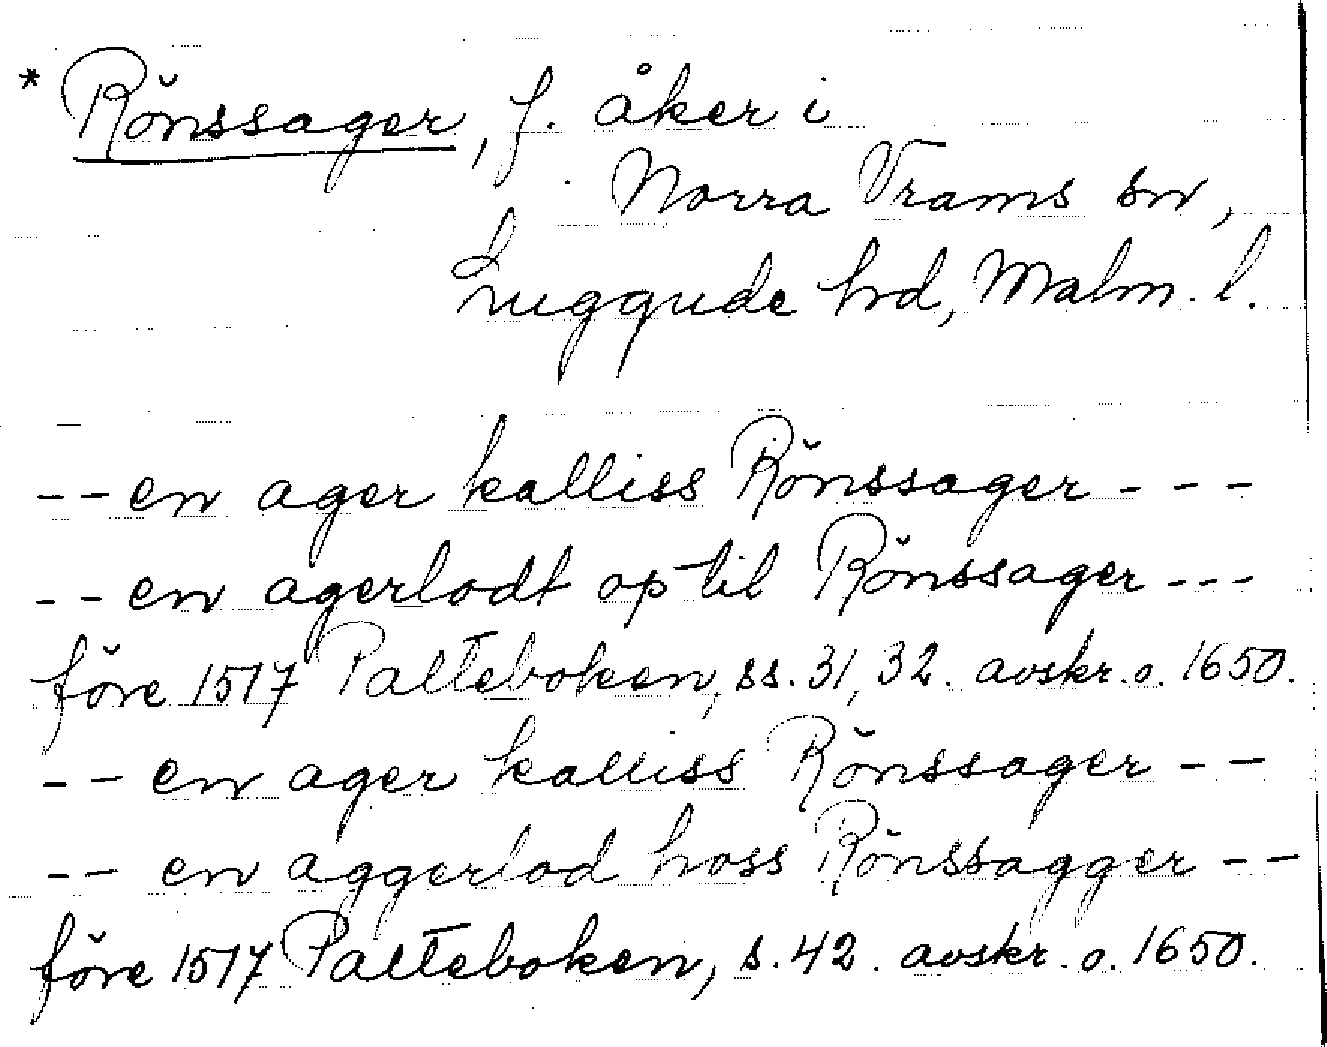 * Rönssager, f. åker i
Norra Vrams sn,
Luggude hrd, Malm. l.
-- en ager kalliss Rönssager ---
-- en agerlodt op til Rönssager ---
före 1517 Palteboken, ss. 31, 32. avskr. o. 1650.
-- en ager kalliss Rönssager --
-- en aggerlod hoss Rönssagger --
före 1517 Palteboken, s. 42. avskr. o. 1650.